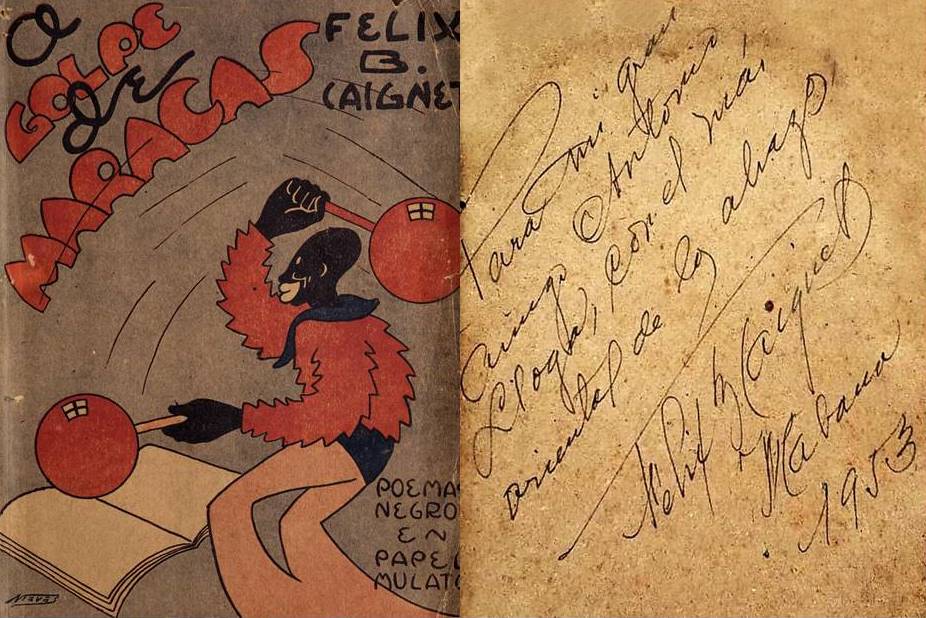 A
GOLPE
DE
MARACAS
FELIX
B.
CAIGNET
POEMA
NEGRO
EN
PAPEL
MULATO
Para mi gran
Amigo Antonio
Lloga, con el mas,
oriental de los abrazos
Felix B Caignet
Habana
1953